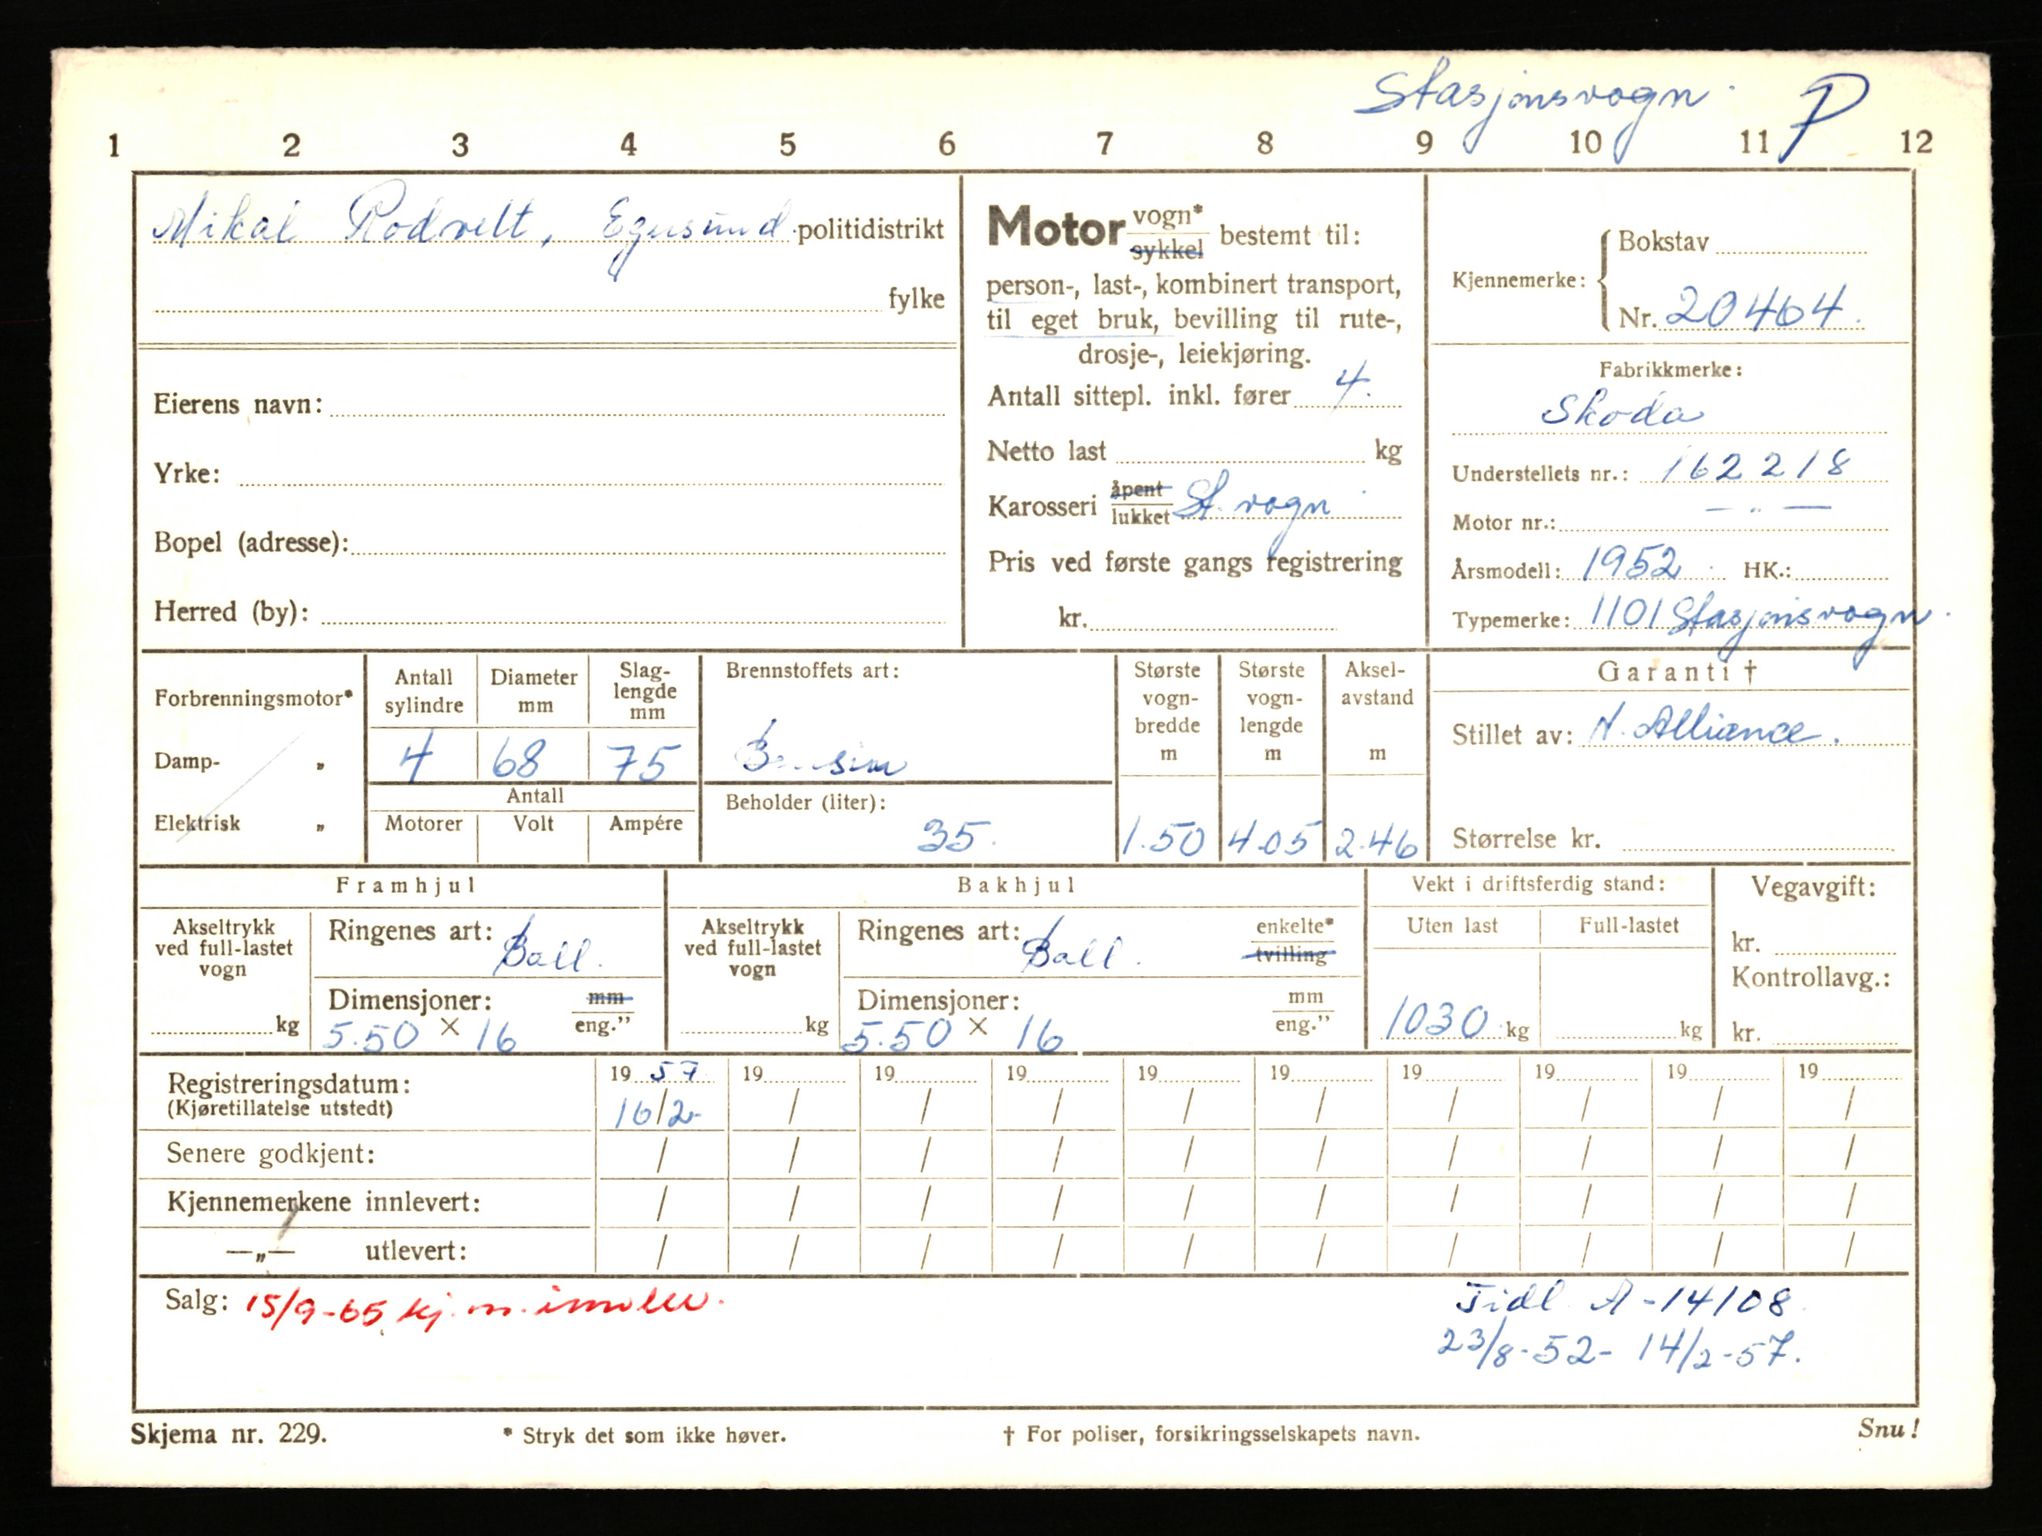 Stasjonsvogn. P
1 2 3 4 5 6 7 8 9 10 11 12
Mikal Rodvelt, Egersund politidistrikt
fylke
Eierens navn:
Yrke:
Bopel (adresse):
Herred (by):
Motor vogn* sykkel bestemt til:
person-, last-, kombinert transport,
til eget bruk, bevilling til rute-,
drosje-, leiekjøring.
Antall sittepl. inkl. fører 4.
Netto last kg
Karosseri åpent lukket St. vogn
Pris ved første gangs registrering
kr.
Kjennemerke: Bokstav
Nr. 20464.
Fabrikkmerke:
Skoda
Understellets nr.: 162218
Motor nr.: — „ —
Årsmodell: 1952 HK.:
Typemerke: 1101 Stasjonsvogn.
Forbrenningsmotor*
Damp- „
Elektrisk „
Antall sylindre
Diameter mm
Slag-lengde mm
4 68 75
Antall
Motorer Volt Ampére
Brennstoffets art:
Bensin
Beholder (liter):
35.
Største vogn-bredde m
1.50
Største vogn-lengde m
4.05
Aksel-avstand m
2.46
Garanti †
Stillet av: N. Alliance.
Størrelse kr.
Framhjul
Akseltrykk
ved full-lastet
vogn
kg
Ringenes art: Ball.
Dimensjoner: mm eng.”
5.50 × 16
Bakhjul
Akseltrykk
ved full-lastet
vogn
kg
Ringenes art: Ball. enkelte* tvilling
Dimensjoner: mm eng.”
5.50 × 16
Vekt i driftsferdig stand:
Uten last Full-lastet
1030 kg kg
Vegavgift:
kr.
Kontrollavg.:
kr.
Registreringsdatum: 19 57 19 19 19 19 19 19 19 19 19
(Kjøretillatelse utstedt) 16/2- / / / / / / / / /
Senere godkjent: / / / / / / / / / /
Kjennemerkene innlevert: / / / / / / / / / /
—„— utlevert: / / / / / / / / / /
Salg: 15/9-65 kj. m. innlev.
Tidl. A-14108
23/8-52- 14/2-57.
Skjema nr. 229. * Stryk det som ikke høver. † For poliser, forsikringsselskapets navn. Snu!